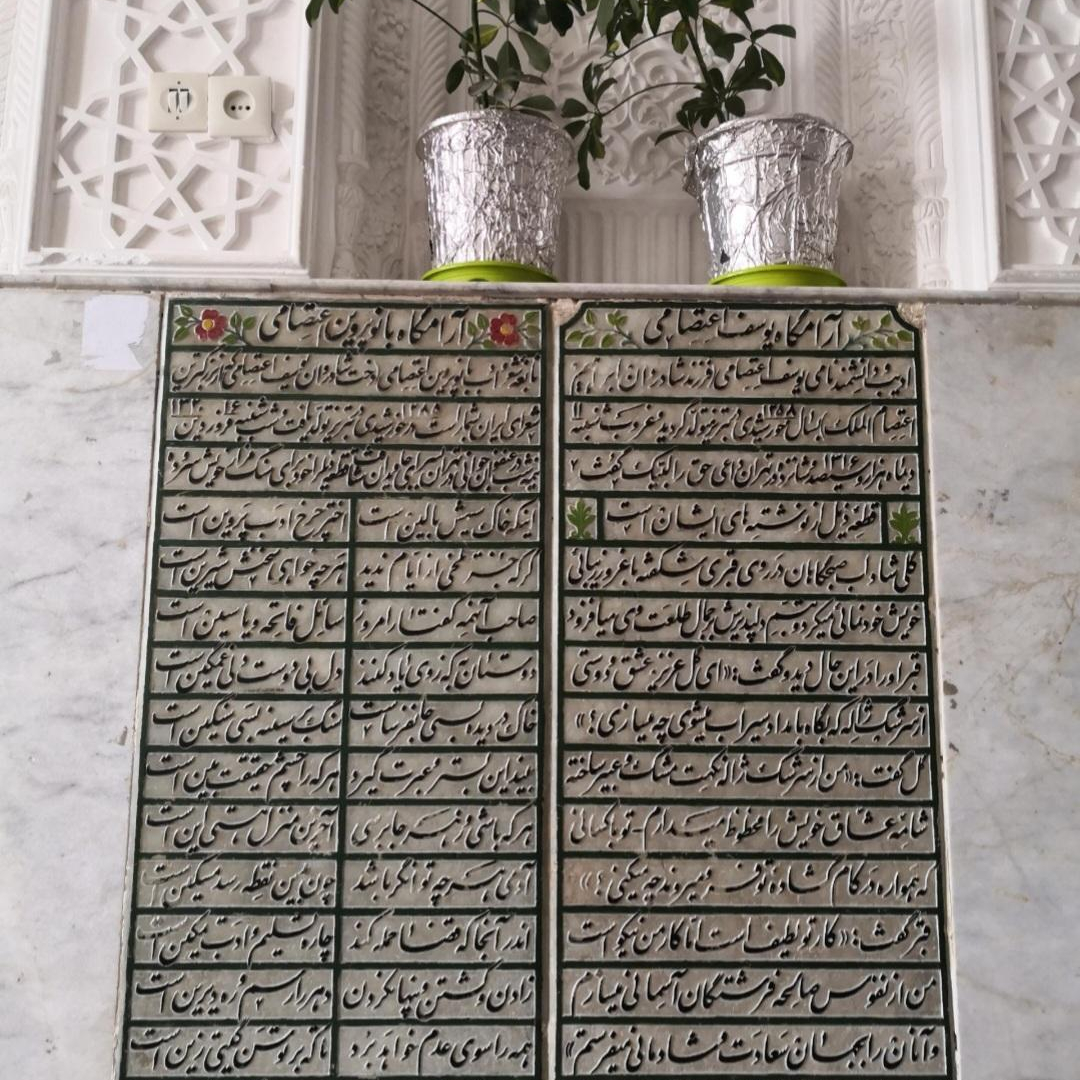 آرامگاه یوسف اعتصامی
ادیب و دانشمند نامی یوسف اعتصامی فرزند شادروان ابراهیم
اعتصام الملک بسال ۱۲۵۸ خورشیدی در تبریز متولد گردید و غروب شنبه ۱۱
دیماه هزار و سیصد و شانزده ۱۳۱۶ در تهران داعی حق را لبیک گفت
قطعه ذیل از نوشته های ایشان است
گلی شاداب صبحگاهان در روی قبری شکفته با غرور زیبائی
خویش خودنمائی میکرد و تبسم دلپذیرش بجمال طلعت وی میافزود
قبر او را در این حال دید و گفت: «ای گل عزیز عشق دوستی
از سرشک ژاله که بگاه بامداد سیراب میشوی چه میسازی؟»
گل گفت: «من از سرشک ژاله نکهت مشک و عبیر ساخته
شامه عشاق خویش را محظوظ میدارم - تو با کسانی
که همواره در کام گشاده تو فرو میروند چه میکنی؟»
قبر گفت: «کار تو لطیف است اما کار من نیکو است
من از نفوس صالحه فرشتگان آسمانی میسازم
و آنان را بجهان سعادت و شادمانی میفرستم»
آرامگاه بانو پروین اعتصامی
نابغه شعر و ادب بانو پروین اعتصامی دخت شادروان یوسف اعتصامی که از بزرگترین
شعرای ایران بشمار است در ۱۲۸۵ خورشیدی در تبریز تولد یافت و شب شنبه ۱۶ فروردین ۱۳۲۰
در عنفوان جوانی در تهران بسرای جاودان شتافت قطعه زیر را خود برای سنگ مزار خویش سروده
اینکه خاک سیهش بالین است اختر چرخ ادب پروین است
گر چه جز تلخی از ایام ندید هر چه خواهی سخنش شیرین است
صاحب آنهمه گفتار امروز سائل فاتحه و یاسین است
دوستان به که ز وی یاد کنند دل بی دوست دلی غمگین است
خاک در دیده بسی جانفرساست سنگ بر سینه بسی سنگین است
بیند این بستر و عبرت گیرد هر که را چشم حقیقت بین است
هر که باشی و ز هر جا برسی آخرین منزل هستی این است
آدمی هر چه توانگر باشد چون بدین نقطه رسد مسکین است
اندر آنجا که قضا حمله کند چاره تسلیم و ادب تمکین است
زادن و کشتن و پنهان کردن دهر را رسم و ره دیرین است